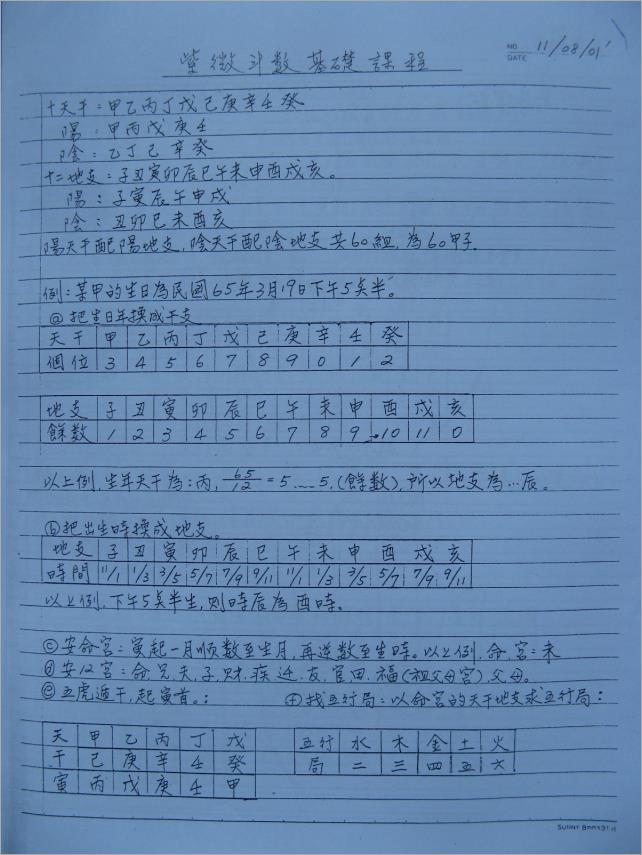 紫微斗数基礎課程
NO.
DATE 11/08/01'
十天干：甲乙丙丁戊己庚辛壬癸
陽：甲丙戊庚壬
陰：乙丁己辛癸
十二地支：子丑寅卯辰巳午未申酉戌亥。
陽：子寅辰午申戌
陰：丑卯巳未酉亥
陽天干配陽地支，陰天干配陰地支共60組，為60甲子.
例：某甲的生日為民國65年3月19日下午5点半。
@把生日年換成干支
天干 甲 乙 丙 丁 戊 己 庚 辛 壬 癸
個位 3 4 5 6 7 8 9 0 1 2
地支 子 丑 寅 卯 辰 巳 午 未 申 酉 戌 亥
餘數 1 2 3 4 5 6 7 8 9 10 11 0
以上例，生年天干為：丙，65/12=5……5，(餘數)，所以地支為…辰。
ⓑ把出生時換成地支。
地支 子 丑 寅 卯 辰 巳 午 未 申 酉 戌 亥
時間 11/1 1/3 3/5 5/7 7/9 9/11 11/1 1/3 3/5 5/7 7/9 9/11
以上例，下午5点半生，則時辰為酉時。
ⓒ安命宮：寅起一月順数至生月，再逆数至生時。以上例，命宮：未
ⓓ安12宮：命.兄.夫.子.財.疾.迁.友.官.田.福(祖父母宮).父母。
ⓔ五虎遁干，起寅首。： ⓕ找五行局：以命宮的天干地支求五行局：
天 甲 乙 丙 丁 戊 五行 水 木 金 土 火
干 己 庚 辛 壬 癸 局 二 三 四 五 六
寅 丙 戊 庚 壬 甲